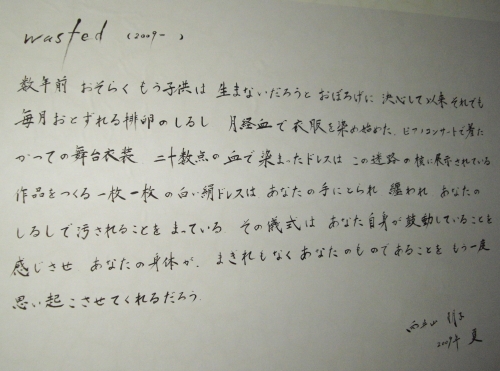 wasted (2009- )
数年前 おそらく もう子供は 生まないだろうと おぼろげに 決心して以来 それでも
毎月おとずれる排卵のしるし 月経血で衣服を染め始めた. ピアノコンサートで着た
かつての舞台衣装 二十数点の血で染まったドレスは この迷路の核に展示されている.
作品をつくる一枚一枚の白い絹ドレスは あなたの手にとられ 纏われ あなたの
しるしで汚されることを まっている. その儀式は あなた自身が鼓動していることを
感じさせ あなたの身体が、まぎれもなくあなたのものであることを もう一度
思い起こさせてくれるだろう.
2009年 夏